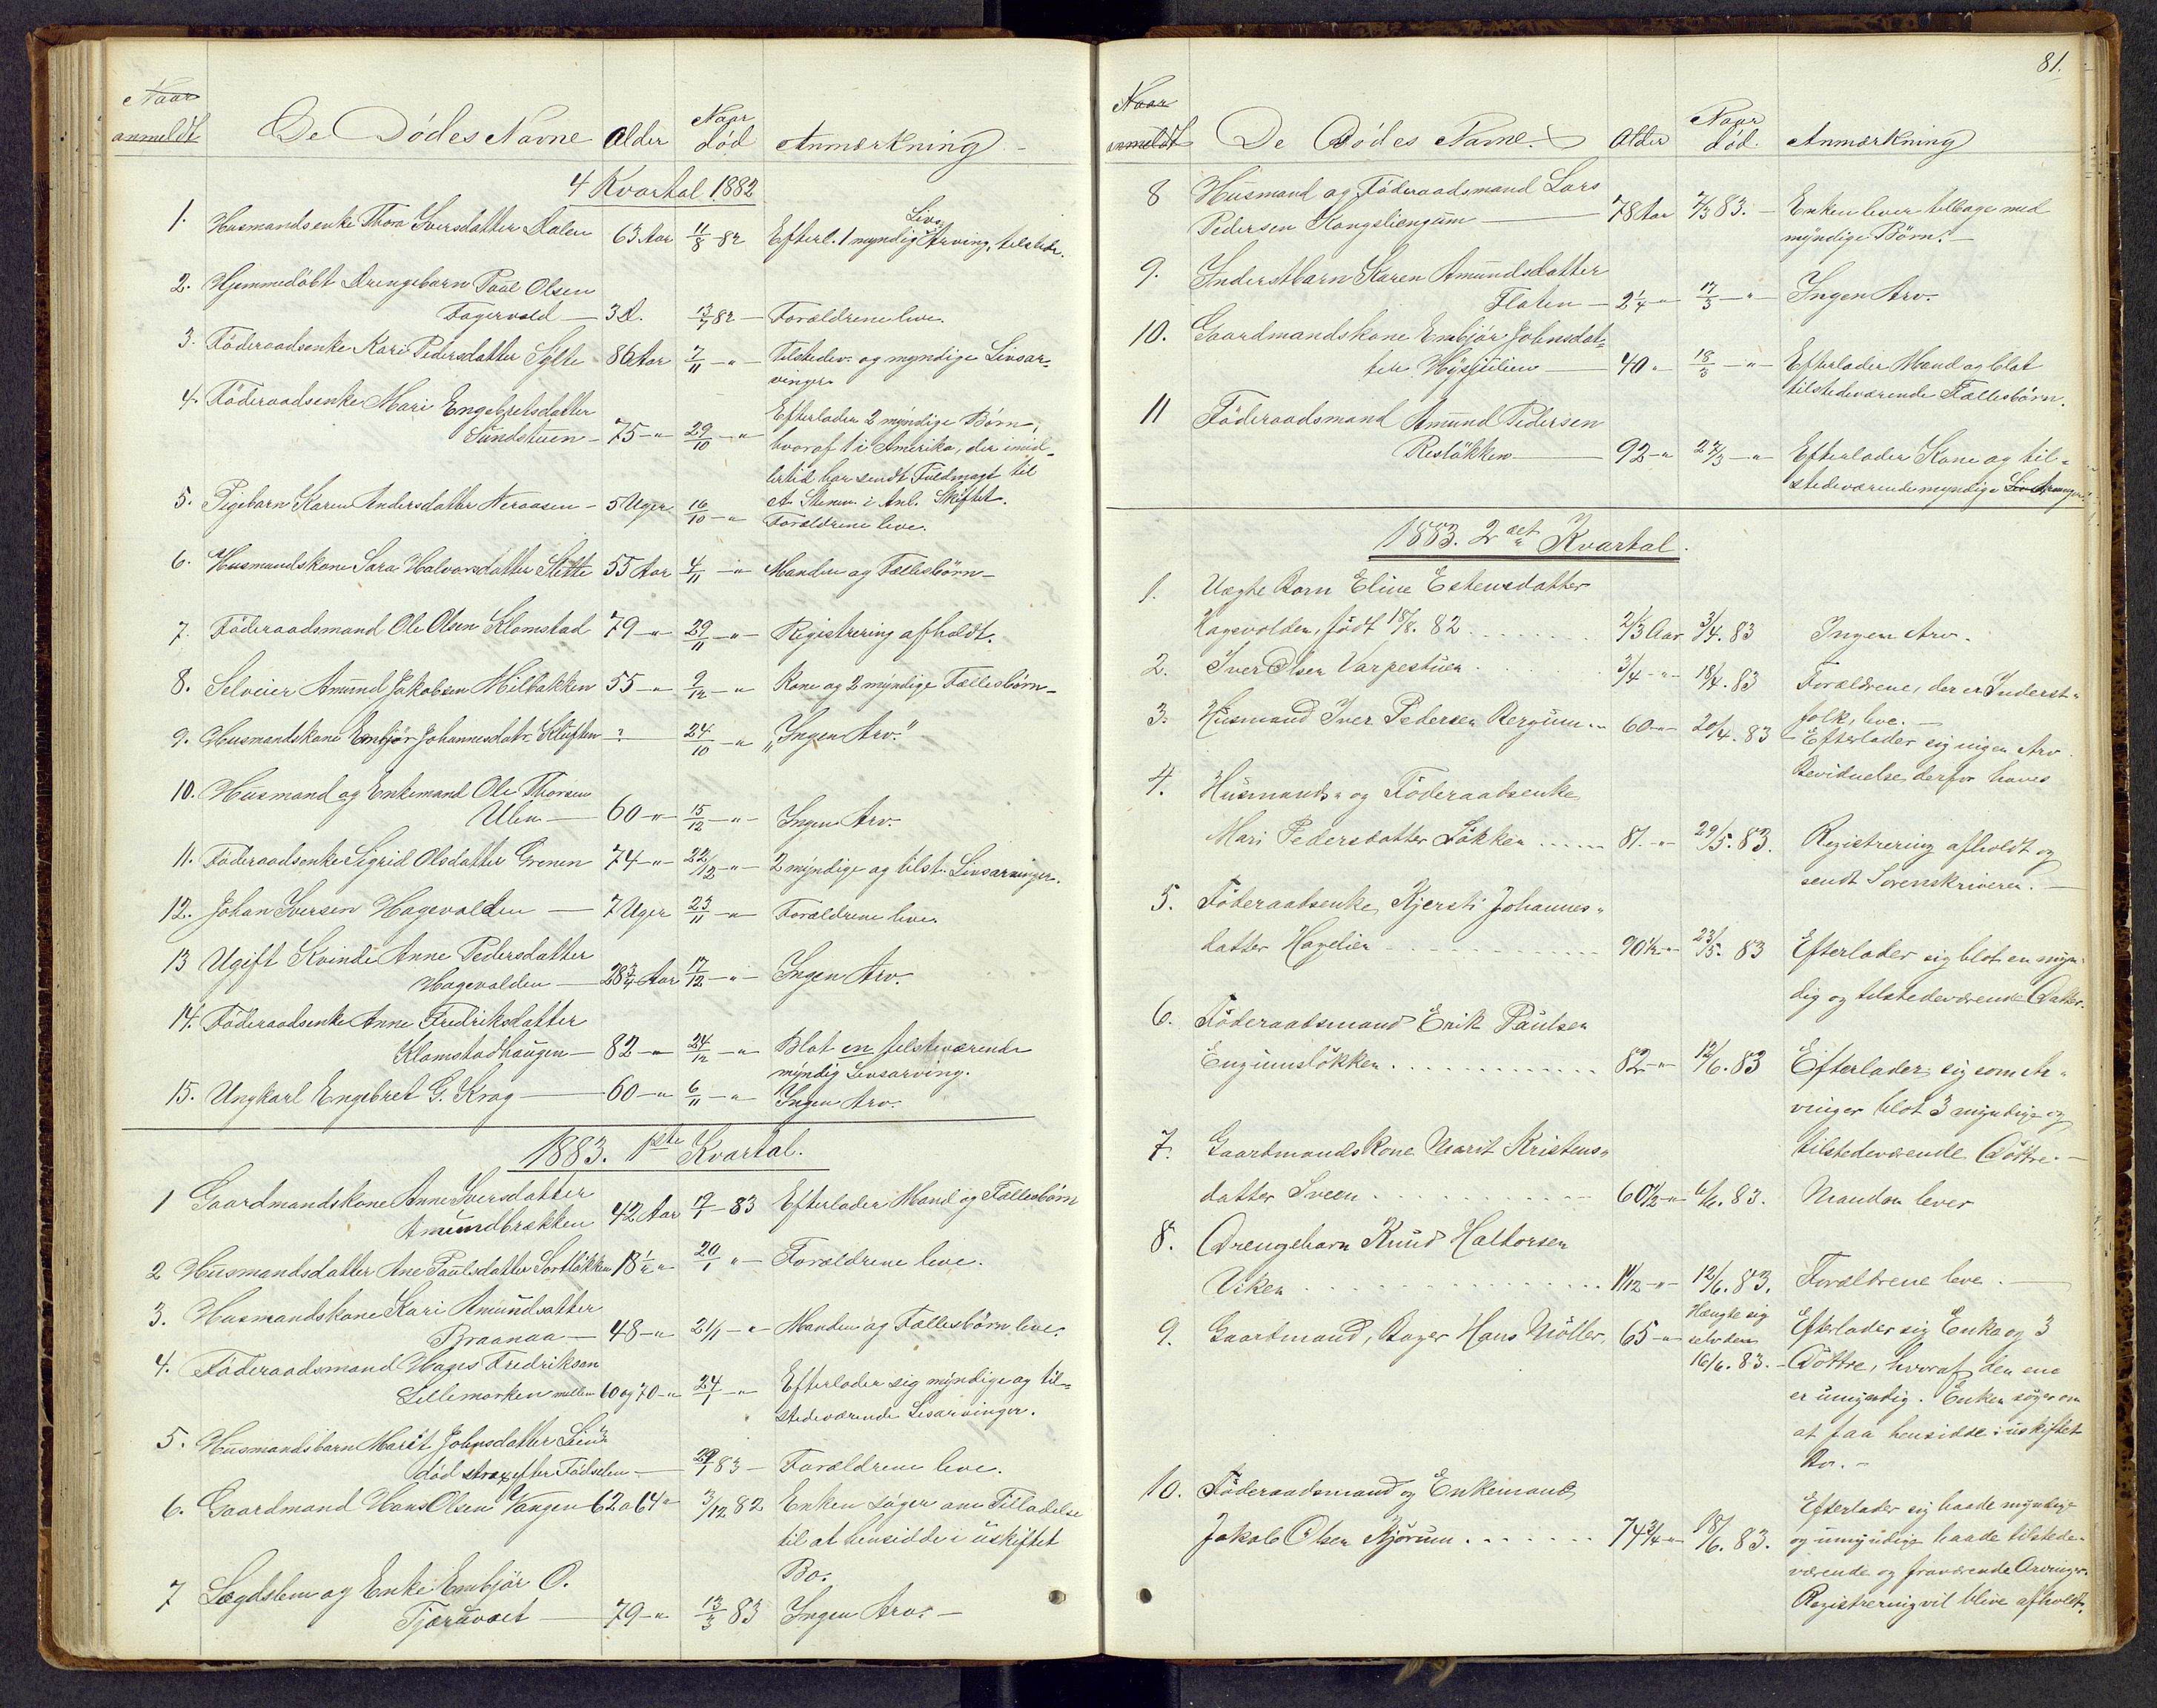 Naar
anmeldt
De Dödes Navne
Alder
Naar
död
Anmærkning
4 Kvartal 1882
1. Husmandsenke Thora Iversdatter Dalen 63 Aar 11/8 - 82 Efterl. 1 myndig Livs Arving, tilstede.
2. Hjemmedöbt Drengebarn Paal Olsen
Fagervold - 3 D. 13/7 82 - Forældrene leve.
3. Föderaadsenke Kari Pedersdatter Sylte - 86 Aar 7/11 - " - Tilstedev. og myndige Livsar-
vinger.
4. Föderaadsenke Mari Engebretsdatter
Sundstuen - 75 - " 29/10 - " Efterlader 2 myndige Börn,
hvoraf 1 i Amerika, der imid-
lertid har sendt Fuldmagt til
A. Stenw. i Anl. Skiftet.
5. Pigebarn Karen Andersdatter Neraasen - 5 Uger 16/10 - " Forældrene leve.
6. Husmandskone Sara Halvorsdatter Slette 55 Aar 4/11 - " Manden og Fællesbörn -
7. Föderaadsmand Ole Olsen Klomstad 79 - " 29/11 - " - Registrering afholdt.
8. Selveier Amund Jakobsen Milbakken 55 - " 9/12 - " Kone og 2 myndige Fællesbörn -
9. Husmandskone Embjör Johannesdatr. Kluften - ? - 24/10 - " „Ingen Arv."
10. Husmand og Enkemand Ole Thorsen
Ulen - 60 - " 15/12 - " - Ingen Arv.
11. Föderaadsenke Sigrid Olsdatter Grenen 74 - " - 22/12 - " - 2 myndige og tilst. Livsarvinger.
12. Johan Iversen Hagevolden - 7 Uger 23/11 - " - Forældrene leve.
13 Ugift Kvinde Anne Pedersdatter
Hagevolden - 28 3/4 Aar 17/12 - " - Ingen Arv.
14. Föderaadsenke Anne Fredriksdatter
Klomstadhaugen - 82 - " 24/12 - " - Blot en tilsteværende
myndig Livsarving.
15. Ungkarl Engebret G. Krag - 60 - " 6/11 - " - Ingen Arv.
1883. 1ste Kvartal.
1 Gaardmandskone Anne Iversdatter
Amundbrækken 42 Aar 19/1 - 83 Efterlader Mand og Fællesbörn
2 Husmandsdatter Ane Paulsdatter Sortløkken 18 1/2 " 20/1 " - Forældrene leve.
3. Husmandskone Kari Amundsatter
Braanaa - 48 - " 21/1 - " - Manden og Fællesbörn leve.
4. Föderaadsmand Hages Fredriksen
Lillemarken mellem 60 og 70 - " 24/1 - " Efterlader sig myndige og til-
stedeværende Livsarvinger.
5. Husmandsbarn Marit Johnsdatter
död strax efter Födselen - 29/1 83 - Forældrene leve.
6. Gaardmand Hans Olsen Vangen 62 a 64 " 3/12 82 Enken söger om Tilladelse
til at hensidde i uskiftet
Bo.
7 Lægdslem og Enke Embjör O.
- 79 - " 13/3 83 Ingen Arv. -
81.
Naar
anmeldt
De Dödes Navne.
Alder
Naar
död.
Anmærkning
8 Husmand og Föderaadsmand Lars
Pedersen Kongsliengum - 78 Aar 7/3 83. - Enken lever tilbage med
myndige Börn. -
9. Inderstbarn Karen Amundsdatter
Flaten - 2 1/4 - " 17/3 - " - Ingen Arv.
10. Gaardmandskone Embjör Johnsdat-
ter Høystulien - 40 " 18/3 - " - Efterlader Mand og blot
tilstedeværende Fællesbörn.
11 Föderaadsmand Amund Pedersen
Reslökken - 92 - " 27/3 - " Efterlader Kone og til-
stedeværende myndige Livsarvinger.
1883. 2det Kvartal.
1. Uægte Barn Eline Estensdatter
Hagevolden, födt 18/8. 82 ...... 2/3 Aar 3/4. 83 Ingen Arv.
2. Iver Olsen Varpestuen ...... 3/4 - " - 18/4. 83 Forældrene, der er Inderst-
folk, leve. -
3. Husmand Iver Pedersen Rergum .. 60 - " - 20/4. 83 - Efterlader sig ingen Arv
Bevidnelse derfor haves
4. Husmands- og Föderaadsenke
Mari Pedersdatter Lökken ...... 81. - " - 29/5. 83. Registrering afholdt og
sendt Sorenskriveren. -
5. Föderaadsenke, Kjersti Johannes-
datter Hagelien ...... 90 1/2 - " - 23/5. 83 Efterlader sig blot en myn-
dig og tilstedeværende Datter.
6. Föderaadsmand Erik Paulsen
Engumslökken ...... 82 - " - 12/6. 83 Efterlader sig som Ar-
vinger blot 3 myndige og
tilstedeværende Döttre. -
7. Gaardmandskone Marit Kristens-
datter Sveen ...... 60 1/2 - " - 6/6. 83. Manden lever
8. Drengebarn Knud Haltorsen
Viken ...... 11/12 - " - 12/6. 83. Forældrene leve. -
9. Gaardmand, Bager Hans Möller. 65 - " - Hængte sig
selv den
16/6. 83. - Efterlader sig Enke og 3
Döttre, hvoraf den ene
er umyndig. Enken söger om
at faa hensidde i uskiftet
Bo. -
10. Föderaadsmand og Enkemand
Jakob Olsen Bjørum ...... 74 3/4 - " - 18/6. 83. Efterlader sig baade myndige
og umyndige baade tilstede-
værende og fraværende Arvinger.
Registrering vil blive afholdt.